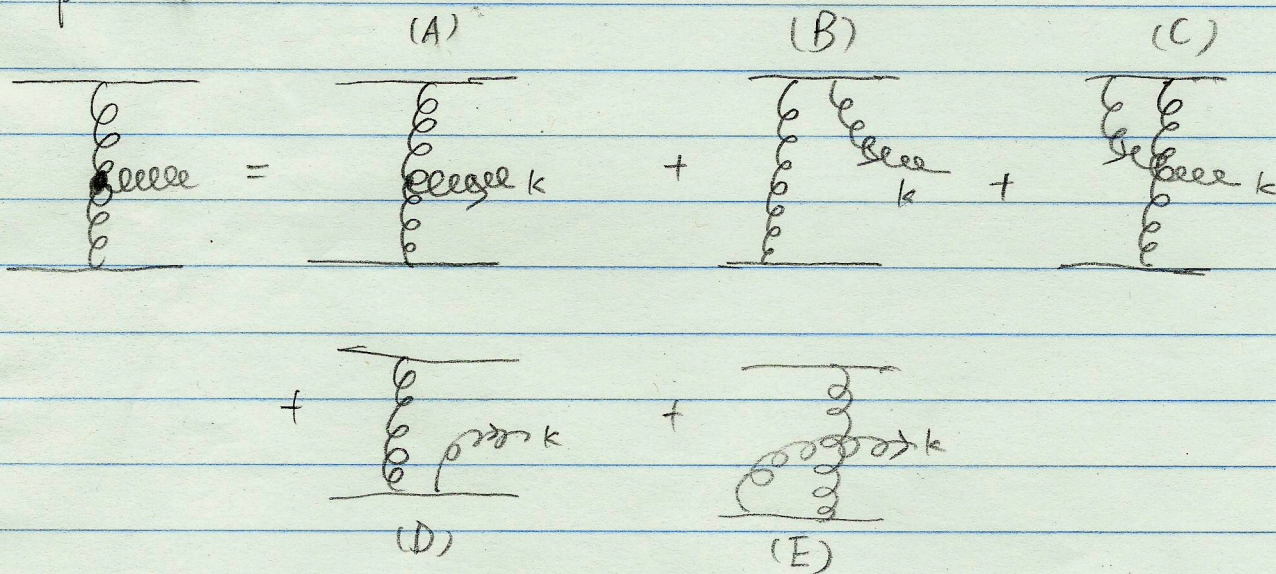 (A) (B) (C)
= k + k + k
+ k + k
(D) (E)